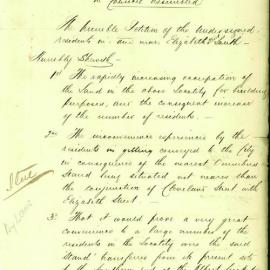 in Council assembled
The humble Petition of the Undersigned
residents in and near Elizabeth St South
Humbly Sheweth
1st The rapidly increasing occupation of
the Land in the above Locality for building
purposes, and the consequent increase
of the number of residents.
2nd The inconvenience experienced by the
residents in getting conveyed to the City
in consequence of the nearest Omnibus
Stand being situated not nearer than
the conjunction of Cleveland Street with
Elizabeth Street.
3 That it would prove a very great
convenience to a large number of the
residents in the Locality were the said
Stand transferred from its present site